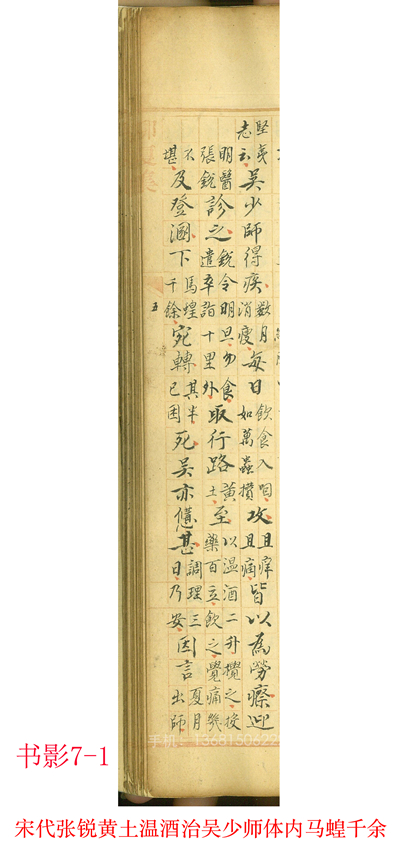 堅夷志云吳少師得疾數月消瘦每日飲食入咽如萬蟲攢攻且痒且痛皆以為勞瘵迎
明醫張銳診之銳令明旦勿食遣卒詣十里外取行路黃土至以溫酒二升攪之後藥百立飲之覺痛幾
不堪及登溷下馬蝗千餘宛轉其半已困死吳亦憊甚調理三日乃安因言夏月出師
五
书影7-1
宋代张锐黄土温酒治吴少师体内马蝗千余